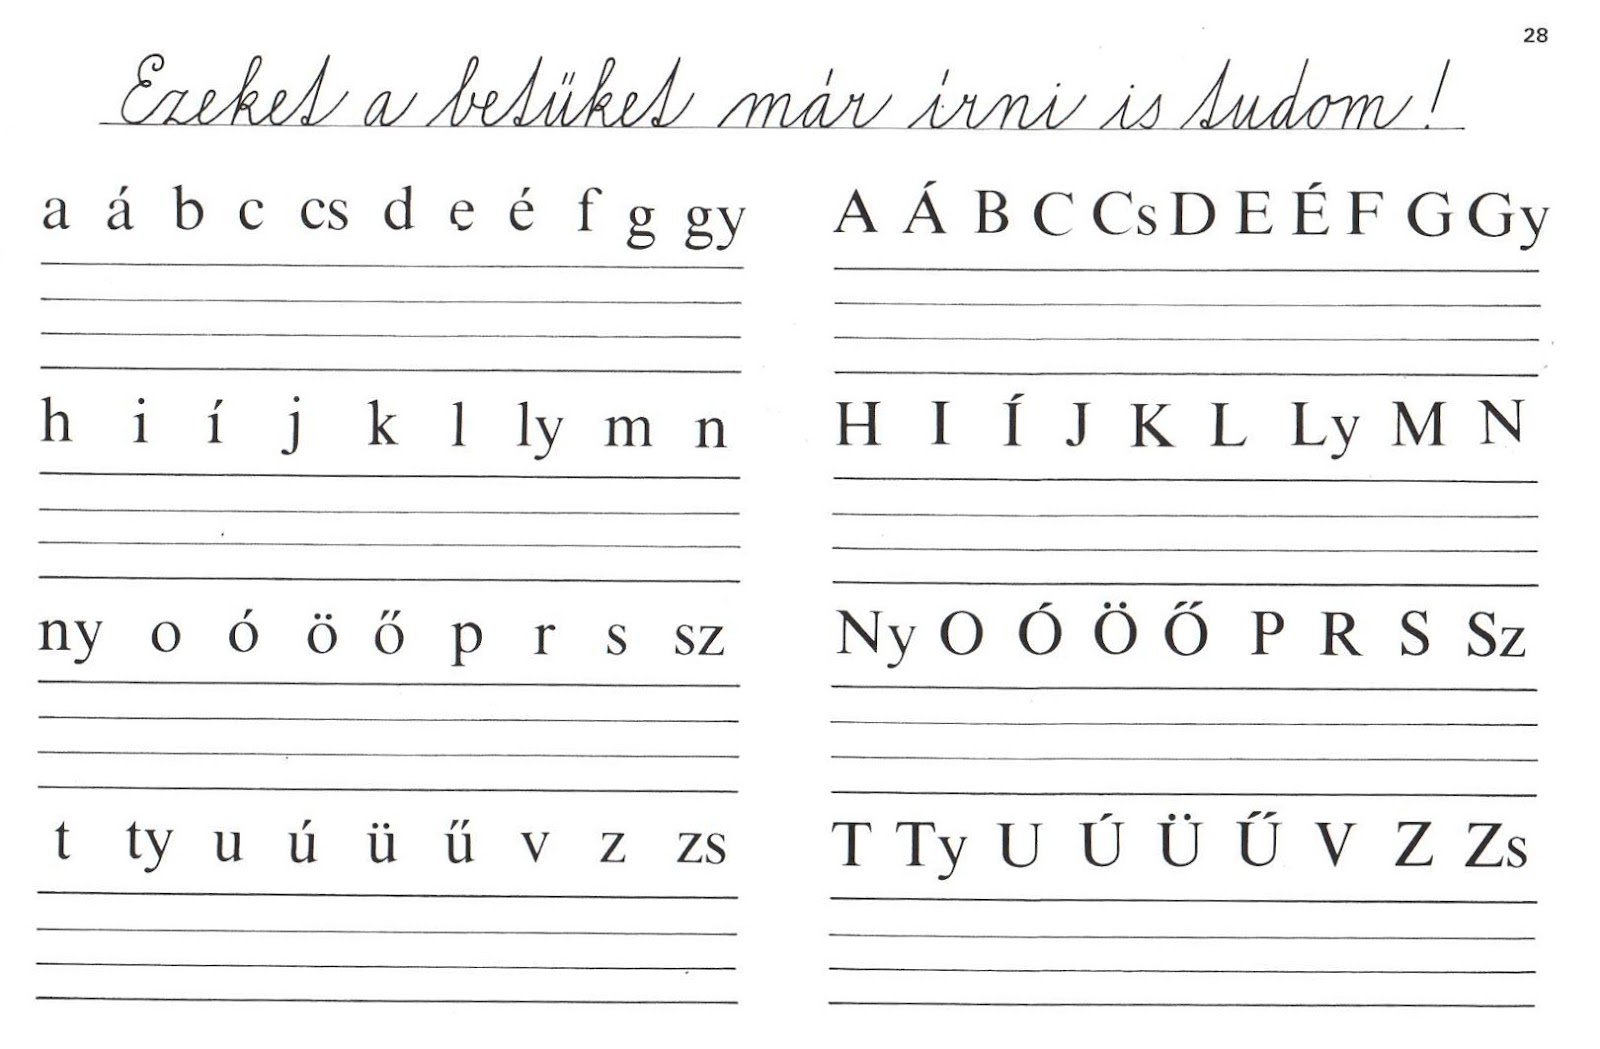 28
Ezeket a betüket már írni is tudom!
a á b c cs d e é f g gy
A Á B C Cs D E É F G Gy
h i í j k l ly m n
H I Í J K L Ly M N
ny o ó ö ő p r s sz
Ny O Ó Ö Ő P R S Sz
t ty u ú ü ű v z zs
T Ty U Ú Ü Ű V Z Zs